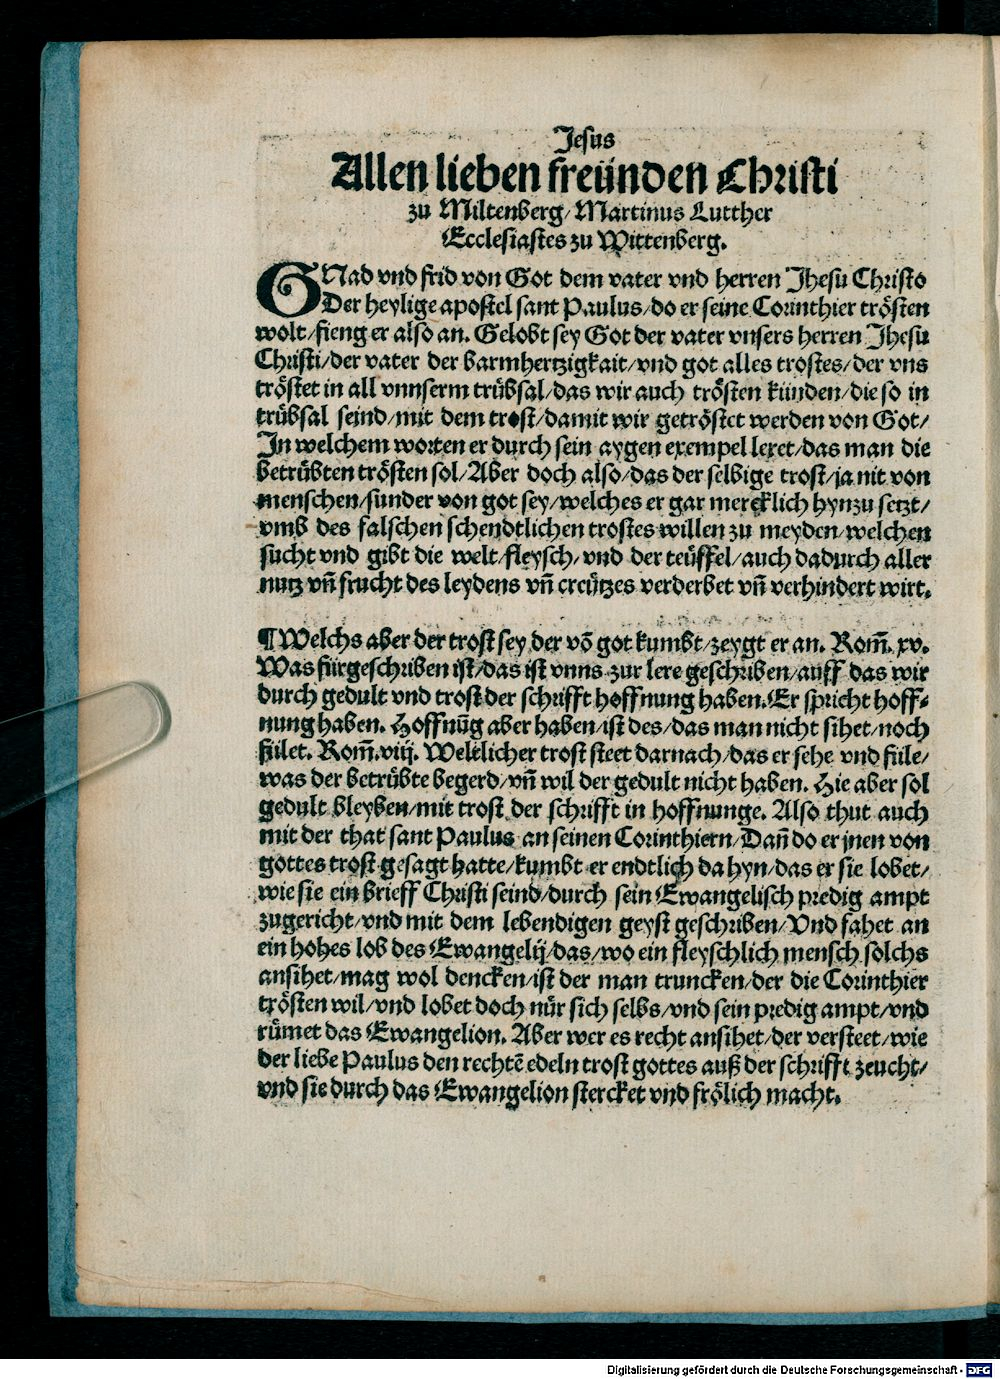 Jesus
Allen lieben freünden Christi
zu Miltenberg/Martinus Lutther
Ecclesiastes zu Wittenberg.
GNad vnd frid von Got dem vater vnd herren Jhesu Christo
Der heylige apostel sant Paulus/do er seine Corinthier trösten
wolt/fieng er also an. Gelobt sey Got der vater vnsers herren Jhesu
Christi/der vater der barmhertzigkait/vnd got alles trostes/der vns
tröstet in all vnnserm trübsal/das wir auch trösten künden/die so in
trübsal seind/mit dem trost/damit wir getröstet werden von Got/
In welchem worten er durch sein aygen exempel leret/das man die
betrübten trösten sol/Aber doch also/das der selbige trost/ja nit von
menschen/sunder von got sey/welches er gar mercklich hynzu setzt/
vmb des falschen schendtlichen trostes willen zu meyden/welchen
sucht vnd gibt die welt/fleysch/vnd der teüffel/auch dadurch aller
nutz vñ frucht des leydens vñ creützes verderbet vñ verhindert wirt.
¶Welchs aber der trost sey der võ got kumbt/zeygt er an. Rom̃. xv.
Was fürgeschriben ist/das ist vnns zur lere geschriben/auff das wir
durch gedult vnd trost der schrifft hoffnung haben.Er spricht hoff⸗
nung haben. Hoffnũg aber haben/ist des/das man nicht sihet/noch
fület. Rom̃.viij. Weltlicher trost steet darnach/das er sehe vnd füle/
was der betrübte begerd/vñ wil der gedult nicht haben. Hie aber sol
gedult bleyben/mit trost der schrifft in hoffnunge. Also thut auch
mit der that sant Paulus an seinen Corinthiern/Dañ do er jnen von
gottes trost gesagt hatte/kumbt er endtlich da hyn/das er sie lobet/
wie sie ein brieff Christi seind/durch sein Ewangelisch predig ampt
zugericht/vnd mit dem lebendigen geyst geschriben/Vnd fahet an
ein hohes lob des Ewangelij/das/wo ein fleyschlich mensch solchs
ansihet/mag wol dencken/ist der man truncken/der die Corinthier
trösten wil/vnd lobet doch nůr sich selbs/vnd sein predig ampt/vnd
rümet das Ewangelion. Aber wer es recht ansihet/der versteet/wie
der liebe Paulus den rechtẽ edeln trost gottes auß der schrifft zeucht/
vnd sie durch das Ewangelion stercket vnd frölich macht.
Digitalisierung gefördert durch die Deutsche Forschungsgemeinschaft - DFG